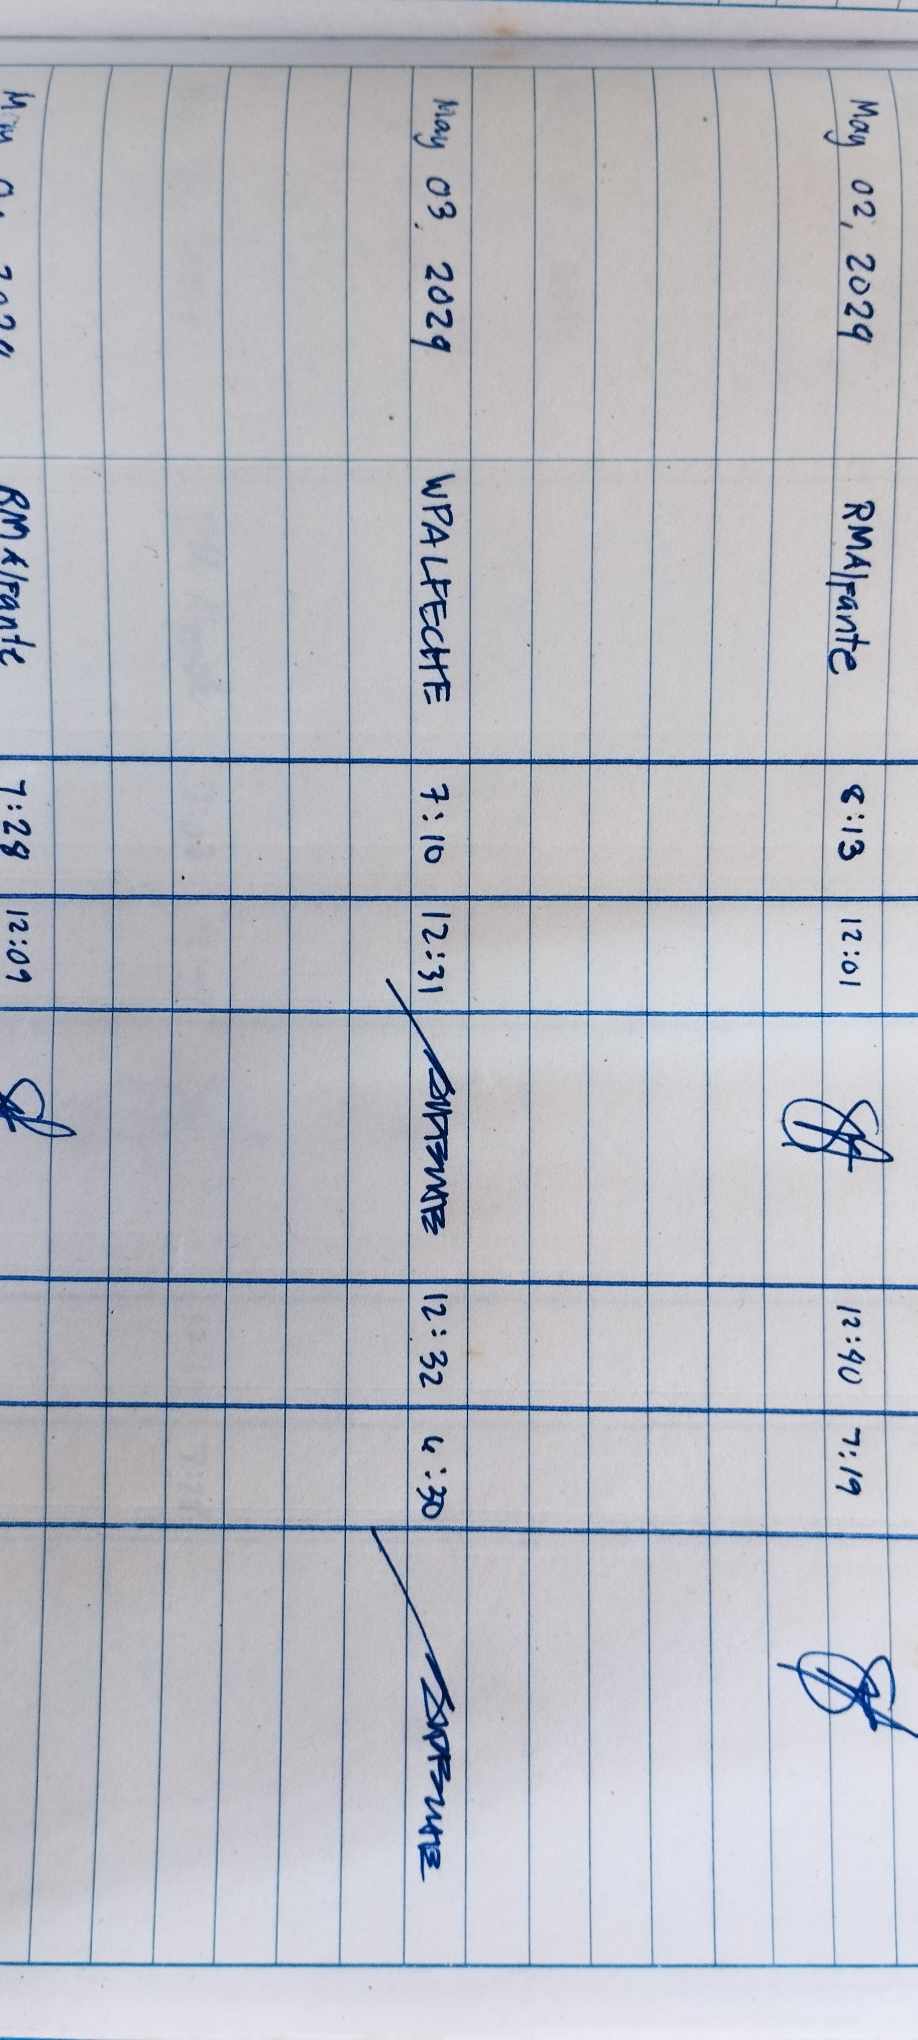 May 02, 2024 RMAlfante 8:13 12:01 12:40 7:19
May 03, 2024 WPALFECHE 7:10 12:31 12:32 4:30
RMAlfante 7:28 12:09